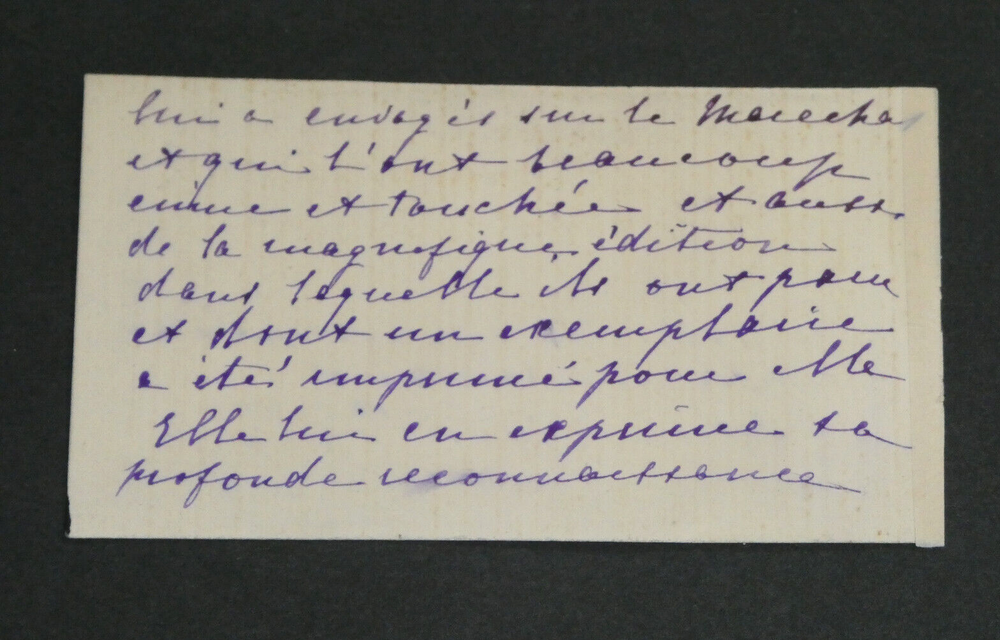 lui a envoyés sur le Marechal
et qui l'ont beaucoup
émue et touchée et aussi
de la magnifique édition
dans laquelle ils ont paru
et dont un exemplaire
a été imprimé pour elle
Elle lui en exprime sa
profonde reconnaissance